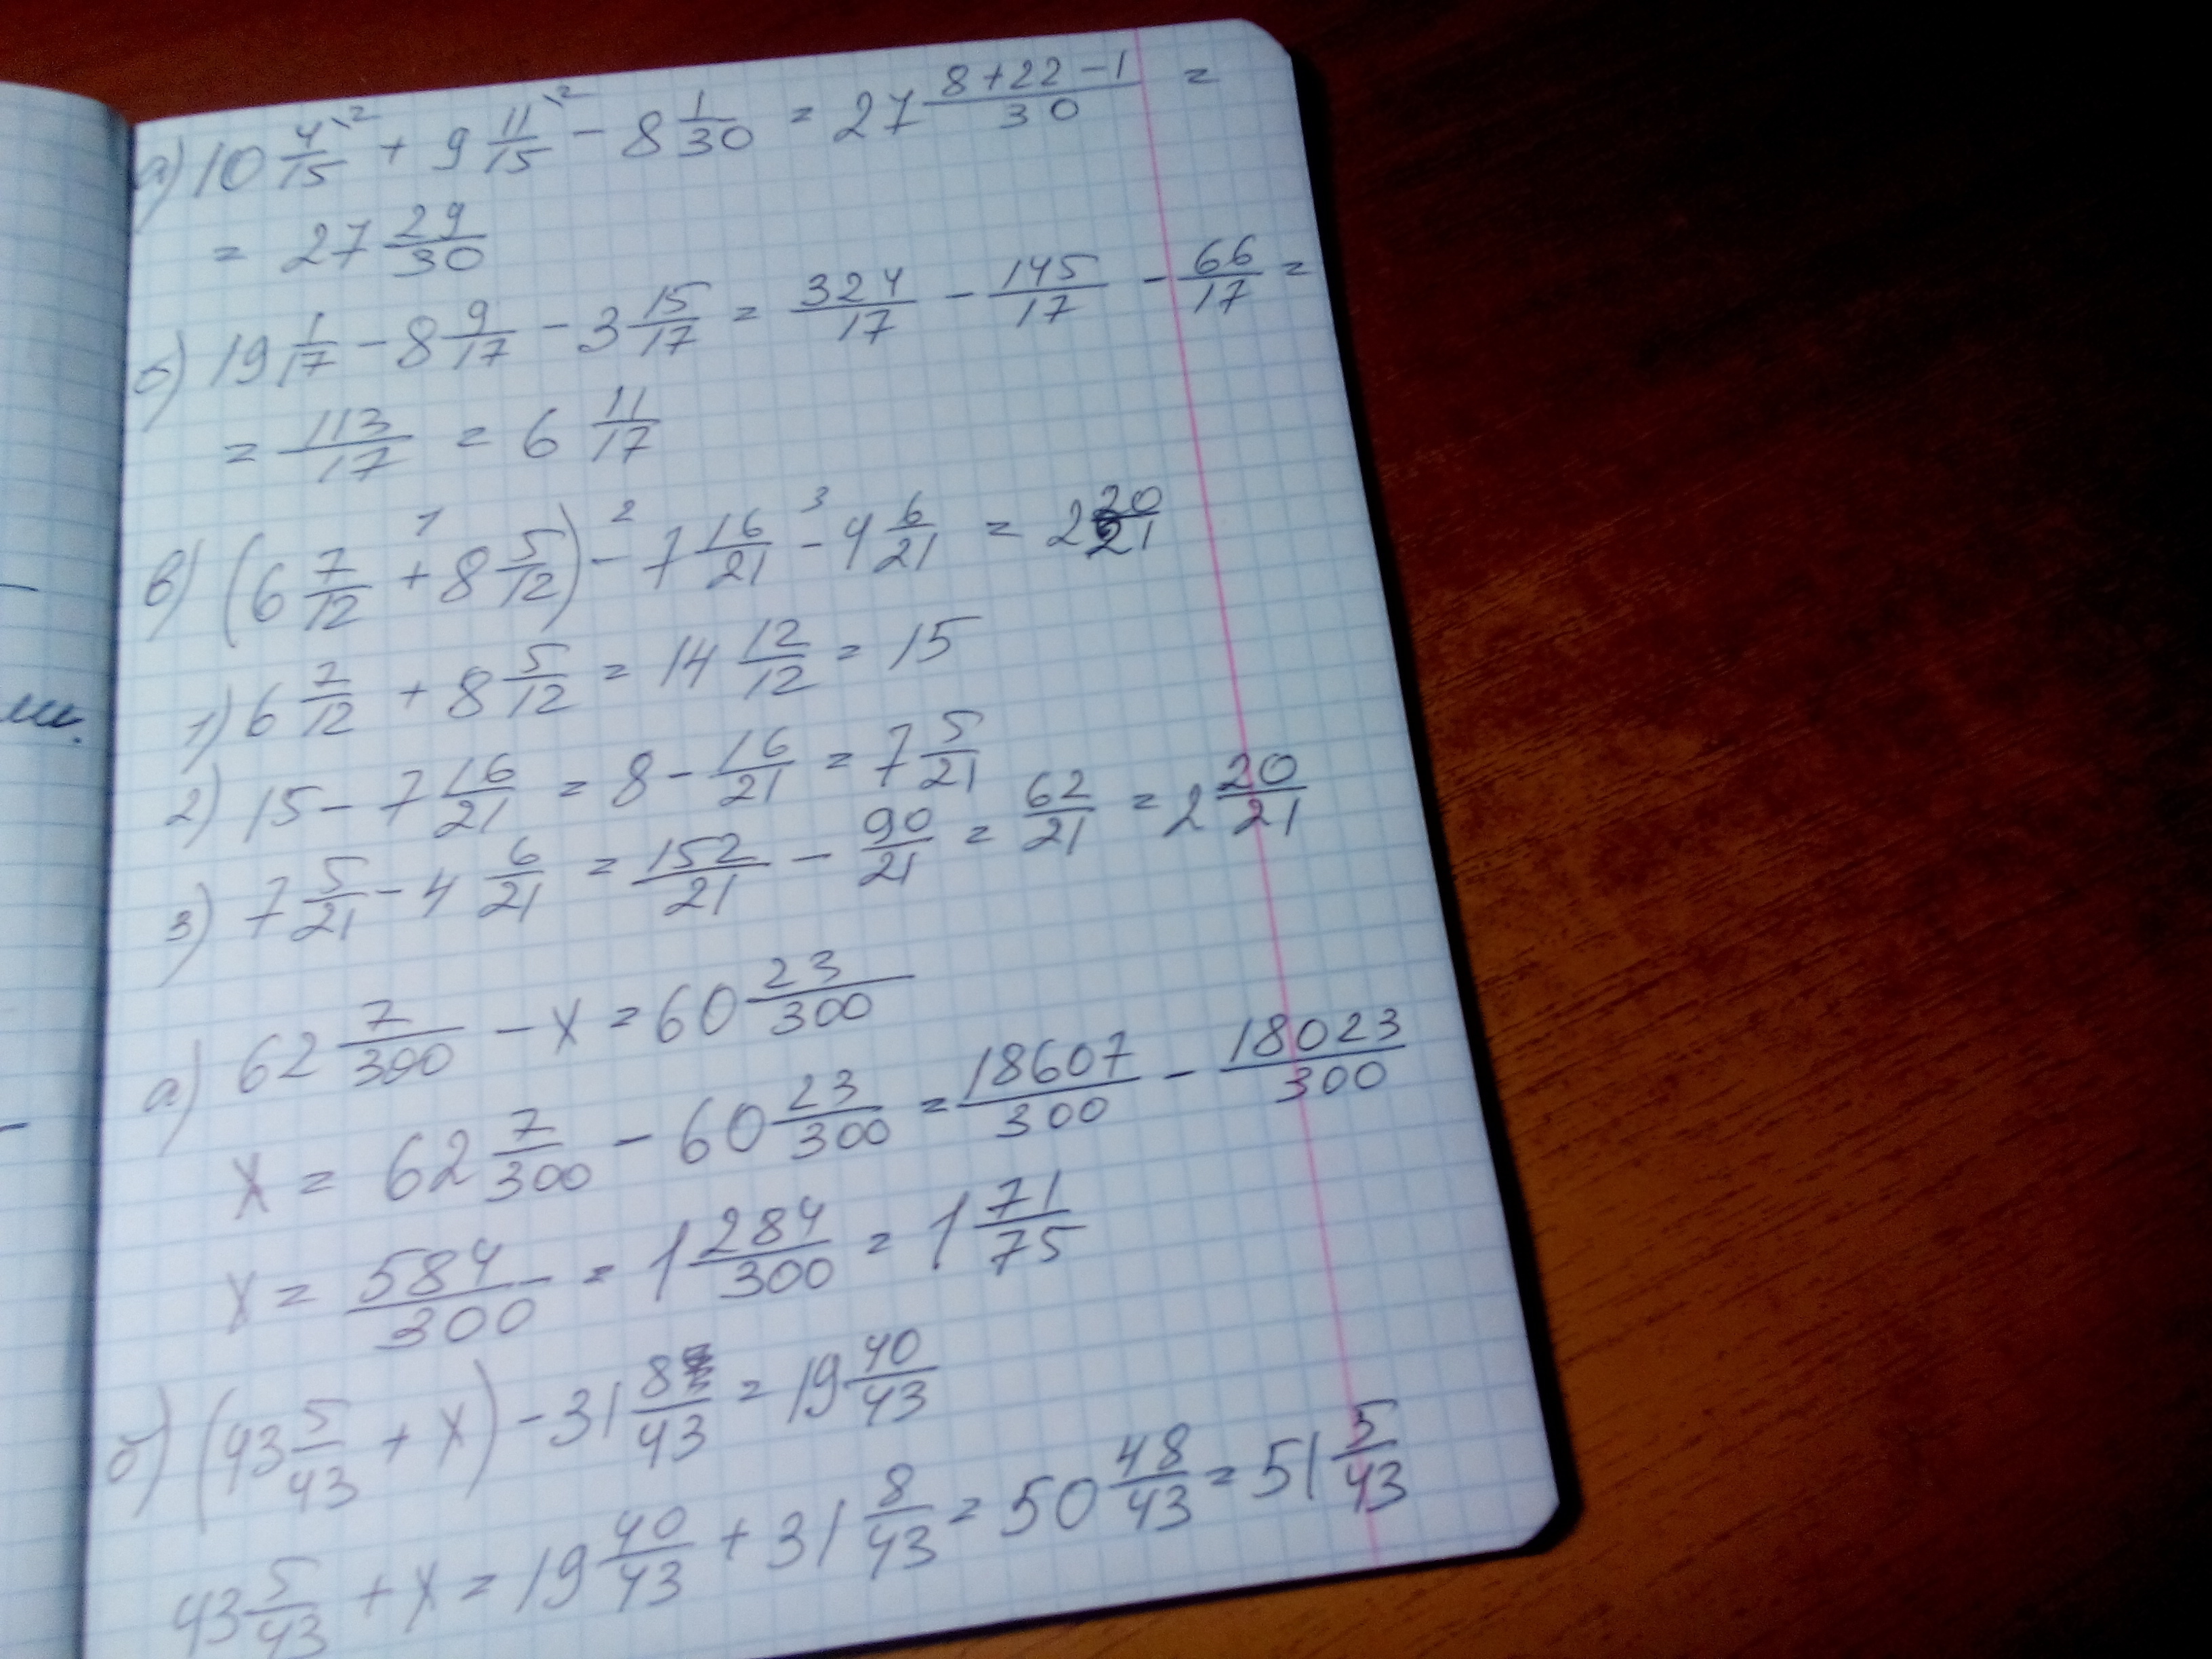 а) 10 4/15 \2 + 9 11/15 \2 - 8 1/30 = 27 (8+22-1)/30 =
= 27 29/30
б) 19 1/17 - 8 9/17 - 3 15/17 = 324/17 - 145/17 - 66/17 =
= 113/17 = 6 11/17
в) (6 7/12 +¹ 8 5/12) -² 7 16/21 -³ 4 6/21 = 2 20/21
1) 6 7/12 + 8 5/12 = 14 12/12 = 15
2) 15 - 7 16/21 = 8 - 16/21 = 7 5/21
3) 7 5/21 - 4 6/21 = 152/21 - 90/21 = 62/21 = 2 20/21
а) 62 7/300 - x = 60 23/300
x = 62 7/300 - 60 23/300 = 18607/300 - 18023/300
x = 584/300 = 1 284/300 = 1 71/75
б) (43 5/43 + x) - 31 8/43 = 19 40/43
43 5/43 + x = 19 40/43 + 31 8/43 = 50 48/43 = 51 5/43